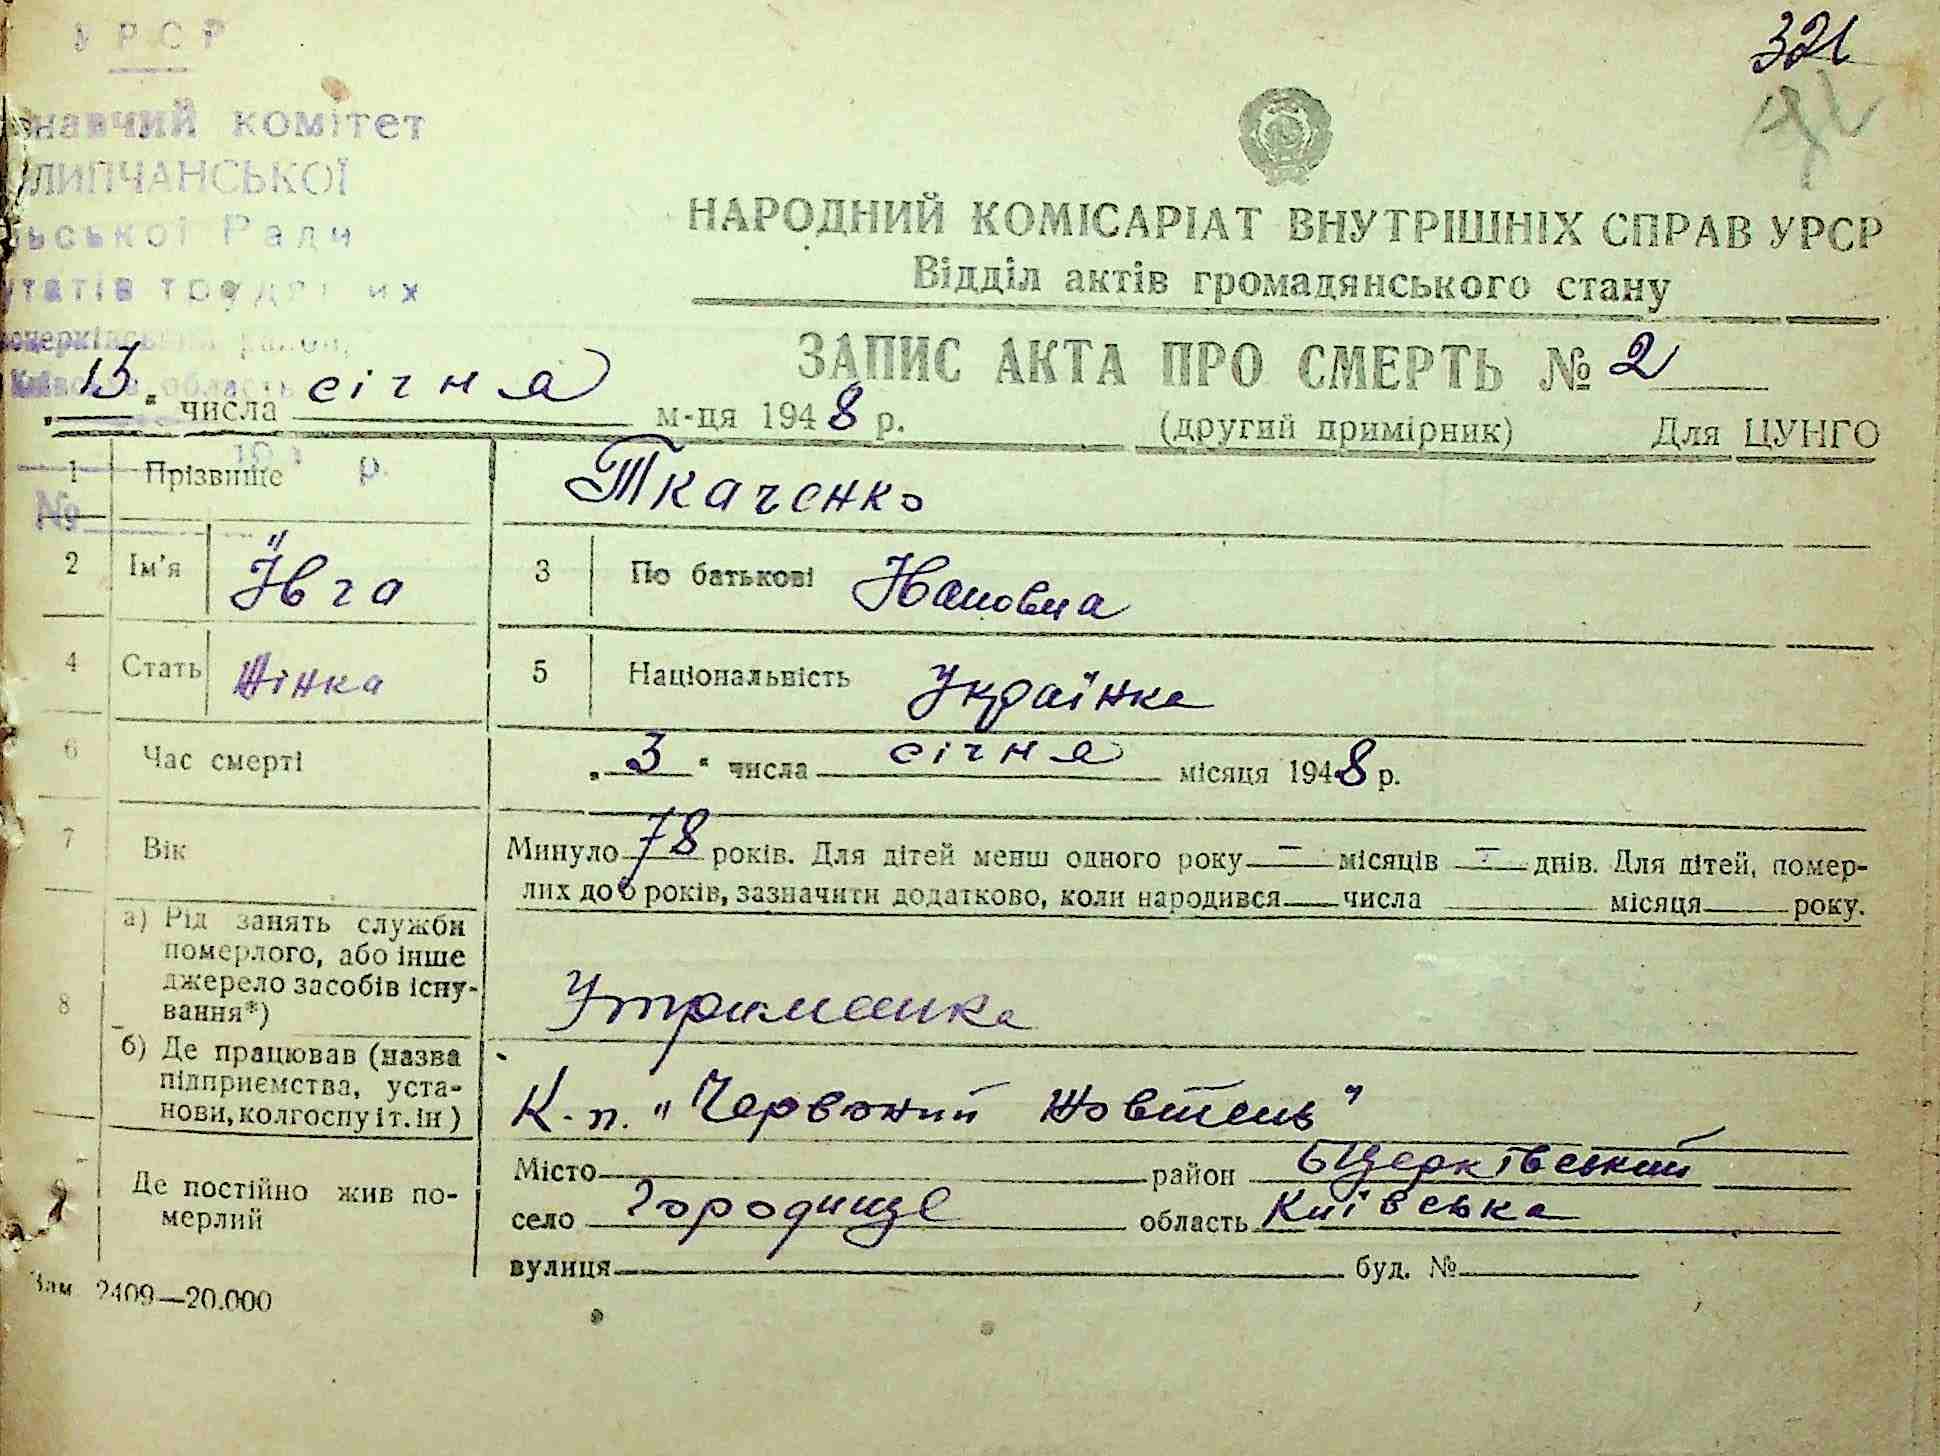 321
УРСР
навчий комітет
ЛИПЧАНСЬКОЇ
ської Ради
утатів трудящих
церківський район,
Київська область
19 р.
№
НАРОДНИЙ КОМІСАРІАТ ВНУТРІШНІХ СПРАВ УРСР
Відділ актів громадянського стану
ЗАПИС АКТА ПРО СМЕРТЬ № 2
„13" числа січня м-ця 1948 р.
(другий примірник) Для ЦУНГО
1 Прізвище Ткаченко
2 Ім'я Ївга 3 По батькові
4 Стать жінка 5 Національність Українка
6 Час смерті „3" числа січня місяця 1948 р.
7 Вік Минуло 78 років. Для дітей менш одного року — місяців — днів. Для дітей, помер-
лих до 6 років, зазначити додатково, коли народився числа місяця року.
8 а) Рід занять служби
померлого, або інше
джерело засобів існу-
вання*)
Утриманка
б) Де працював (назва
підприємства, уста-
нови, колгоспу і т. ін)
К-п. „Червоний Жовтень"
9 Де постійно жив по-
мерлий
Місто район Бцерківський
село Городище область Київська
вулиця буд. №
Зам 2409—20.000